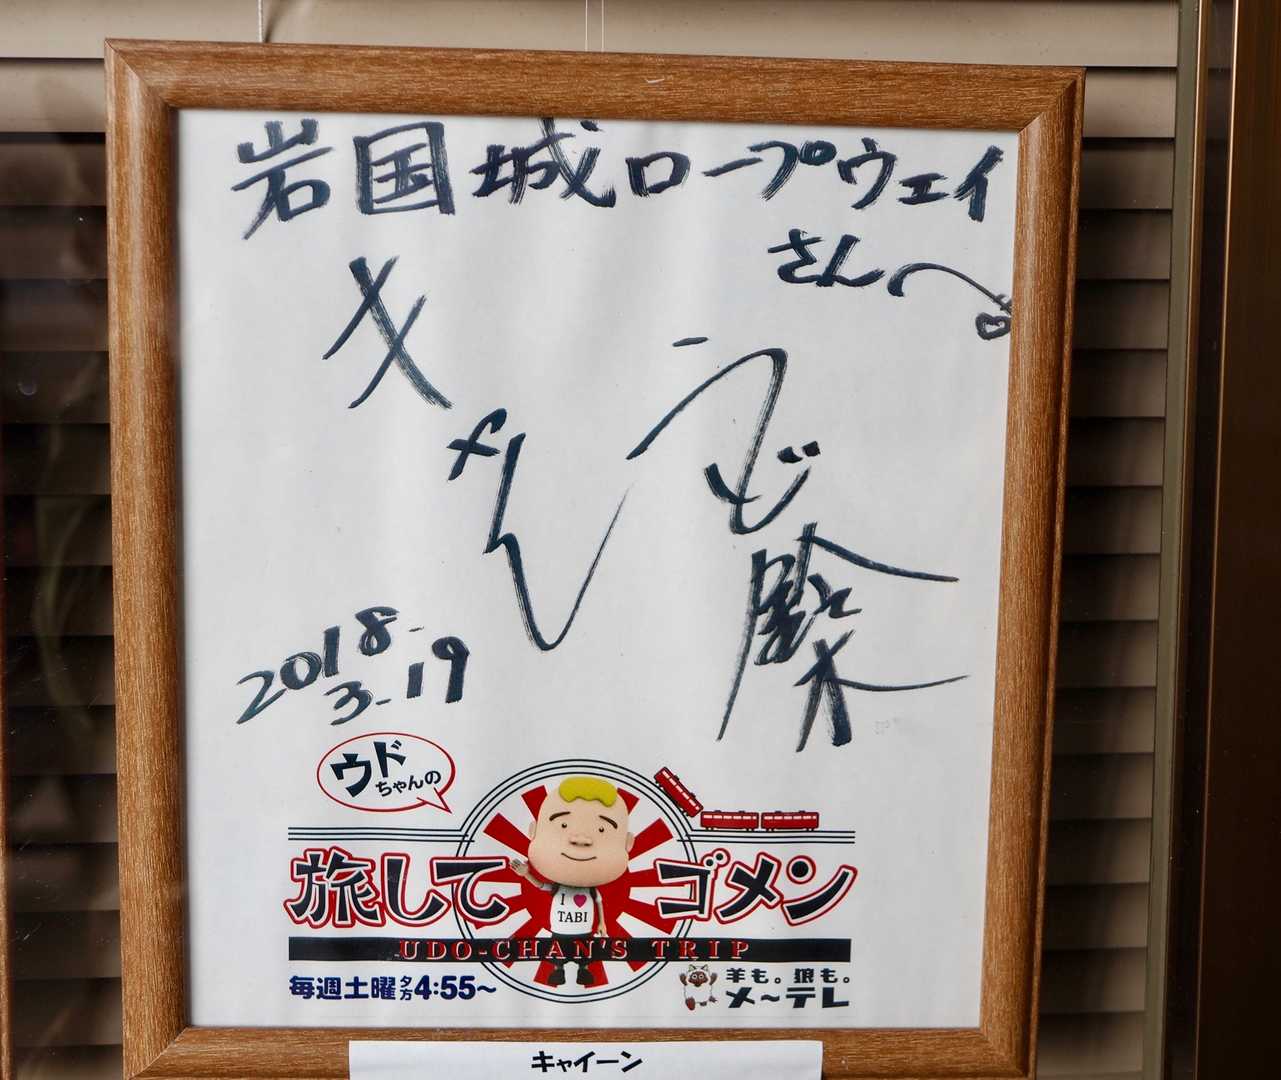 岩国城ロープウェイ
さんへ
うど
鈴木
2018.
3.19
ウド
ちゃんの
旅してゴメン
I ♥
TABI
UDO-CHAN'S TRIP
毎週土曜夕方4:55~
羊も。狼も。
メ~テレ
キャイ~ン